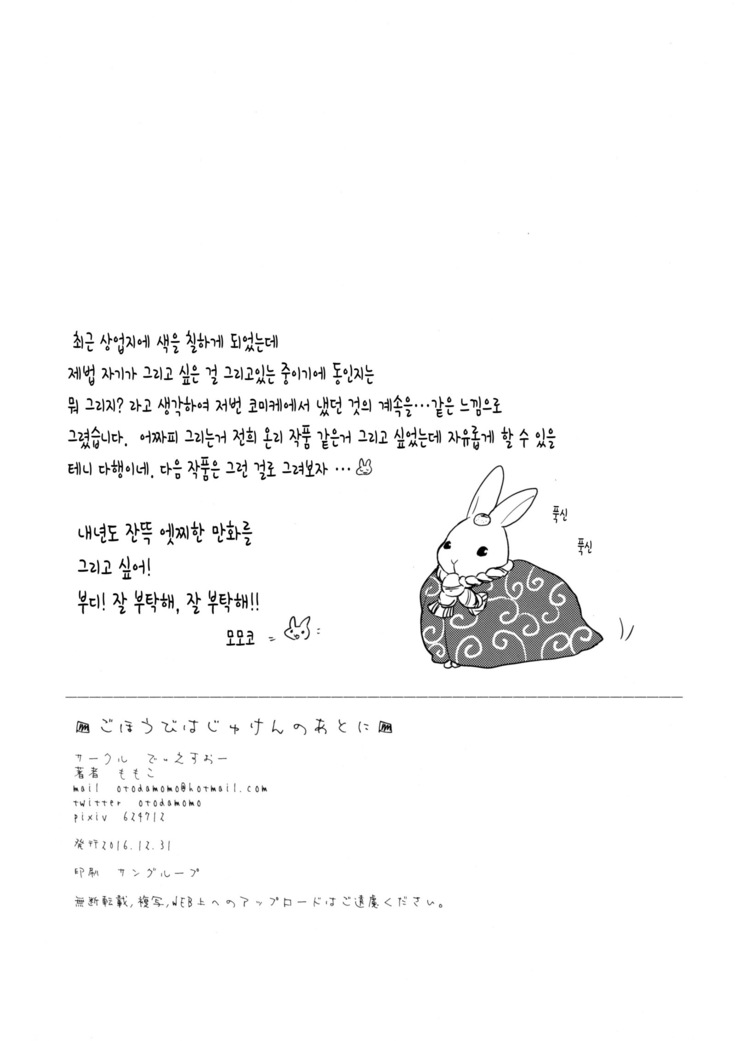 최근 상업지에 색을 칠하게 되었는데
제법 자기가 그리고 싶은 걸 그리고있는 중이기에 동인지는
뭐 그리지? 라고 생각하여 저번 코미케에서 냈던 것의 계속을...같은 느낌으로
그렸습니다. 어짜피 그리는거 전희 온리 작품 같은거 그리고 싶었는데 자유롭게 할 수 있을
테니 다행이네. 다음 작품은 그런 걸로 그려보자 ...
푹신
푹신
내년도 잔뜩 엣찌한 만화를
그리고 싶어!
부디! 잘 부탁해, 잘 부탁해!!
모모코
ごほうびはじゅけんのあとに
サークル でぃえすおー
著者 ももこ
mail otodamomo@hotmail.com
twitter otodamomo
pixiv 624712
発行2016.12.31
印刷 サングループ
無断転載,複写,WEB上へのアップロードはご遠慮ください。